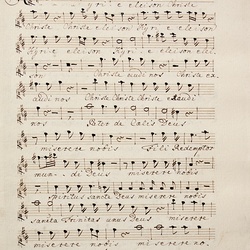 Kyri - e eleison Christe
Kyri - e elei - son Kyri - e elei - son elei
son Christe audi nos Christe ex
audi nos Christe Christe Christe exaudi
nos Pater de Cælis Deus
miserere nobis Fili Redemptor
mun - di Deus miserere nobis
Spiritus sancte Deus miserere nobis
sancta Trinitas unus Deus miserere
miserere nobis miserere no.